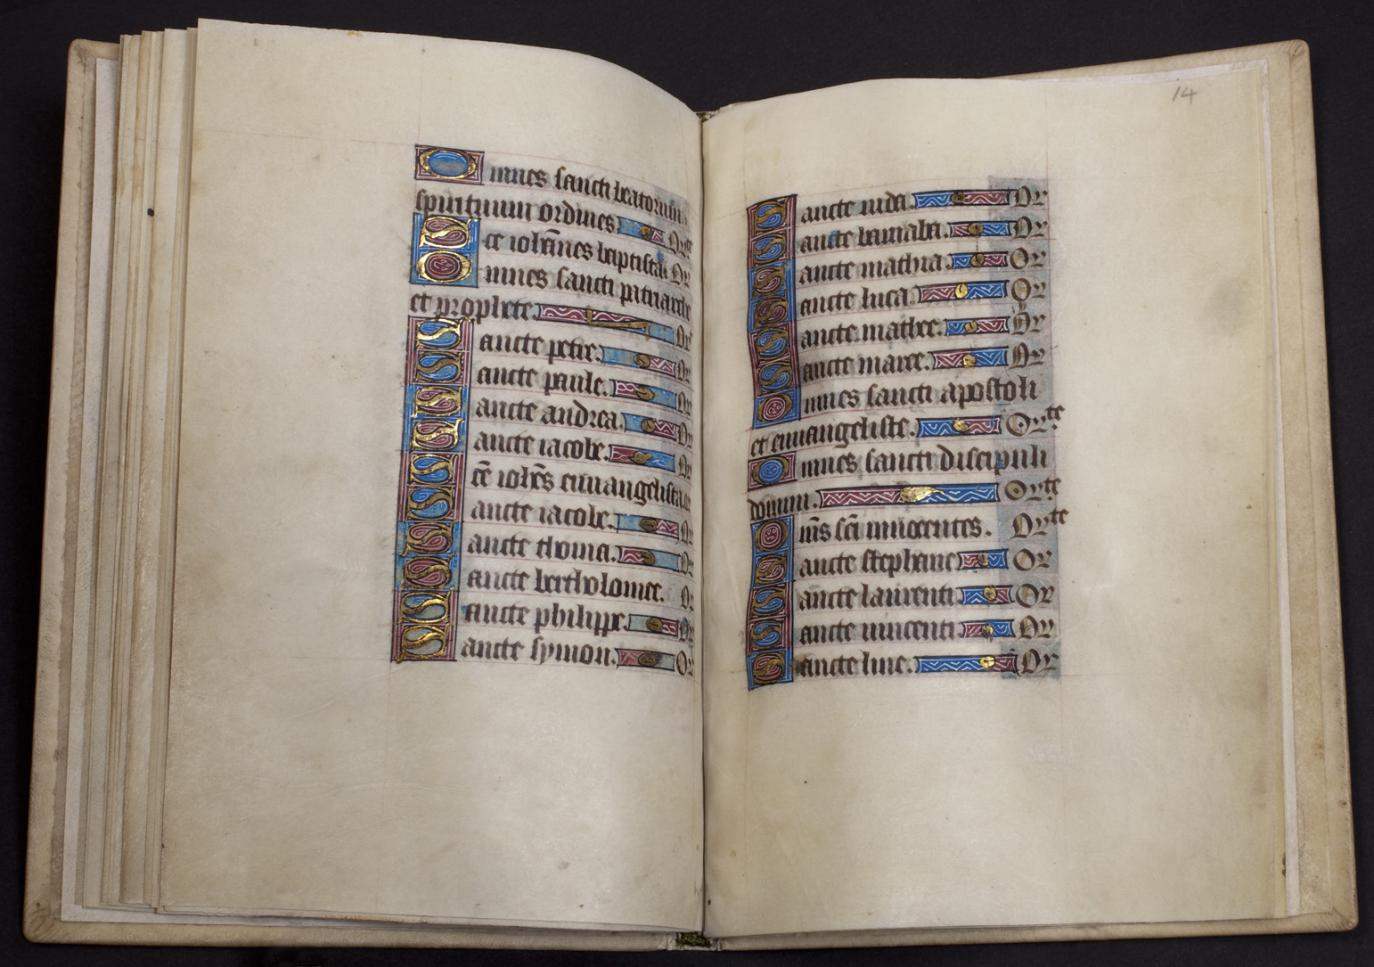 Omnes sancti beatorum
spirituum ordines. Orte
Sce iohannes baptista. Or
Omnes sancti patriarche
et prophete. Or
Sancte petre. Or
Sancte paule. Or
Sancte andrea. Or
Sancte iacobe. Or
Sce iohes euuangelista or
Sancte iacobe. Or
Sancte thoma. Or
Sancte bertholomee. Or
Sancte philippe. Or
Sancte symon. Or
14
Sancte iuda. Or
Sancte barnaba. Or
Sancte mathia. Or
Sancte luca. Or
Sancte mathee. Or
Sancte marce. Or
Omnes sancti apostoli
et euuangeliste. Orte
Omnes sancti discipuli
domini. Orte
Oms sci innocentes. Orte
Sancte stephane Or
Sancte laurenti Or
Sancte uincenti Or
Sancte line. Or